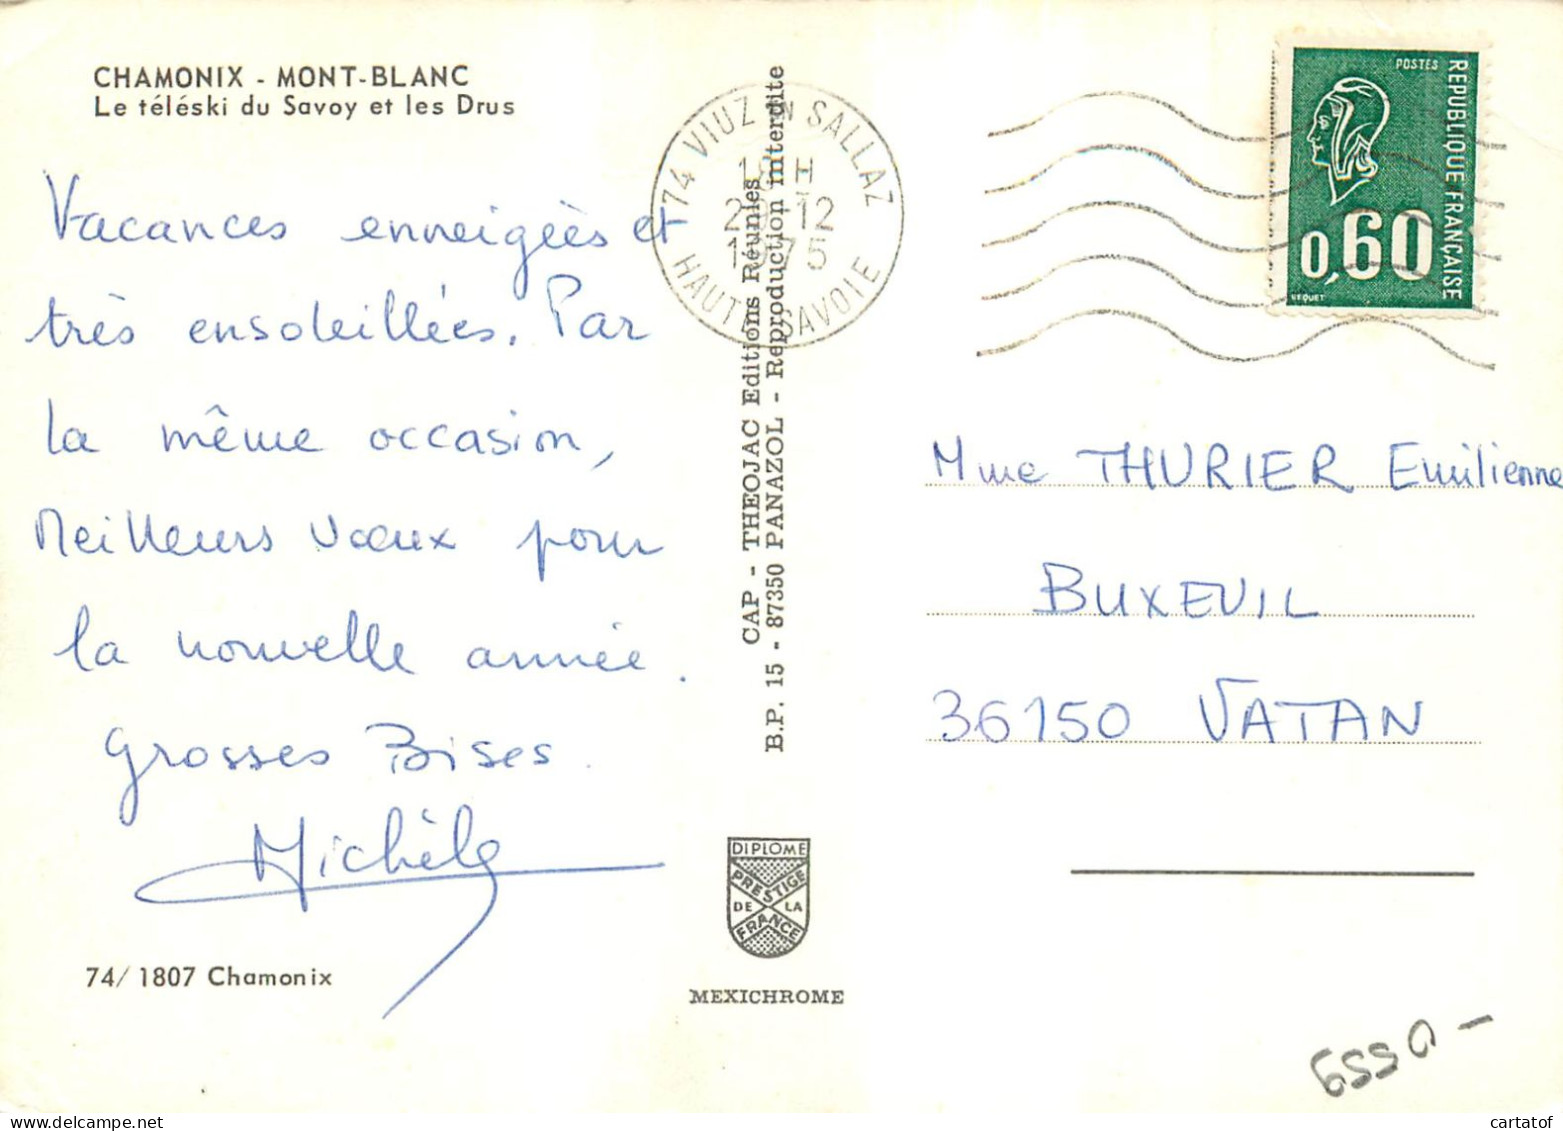 CHAMONIX - MONT-BLANC
Le téléski du Savoy et les Drus
Vacances enneigées et
très ensoleillées. Par
la même occasion,
Meilleurs vœux pour
la nouvelle année.
Grosses Bises.
Michèle
74/ 1807 Chamonix
CAP - THEOJAC Editions Réunies
B.P. 15 - 87350 PANAZOL - Reproduction interdite
DIPLOME
PRESTIGE
DE LA
FRANCE
MEXICHROME
74 VIUZ EN SALLAZ
18 H
-12
1975
HAUTE SAVOIE
POSTES
REPUBLIQUE FRANÇAISE
0,60
BEQUET
Mme THURIER Emilienne
BUXEUIL
36150 VATAN
cartatof